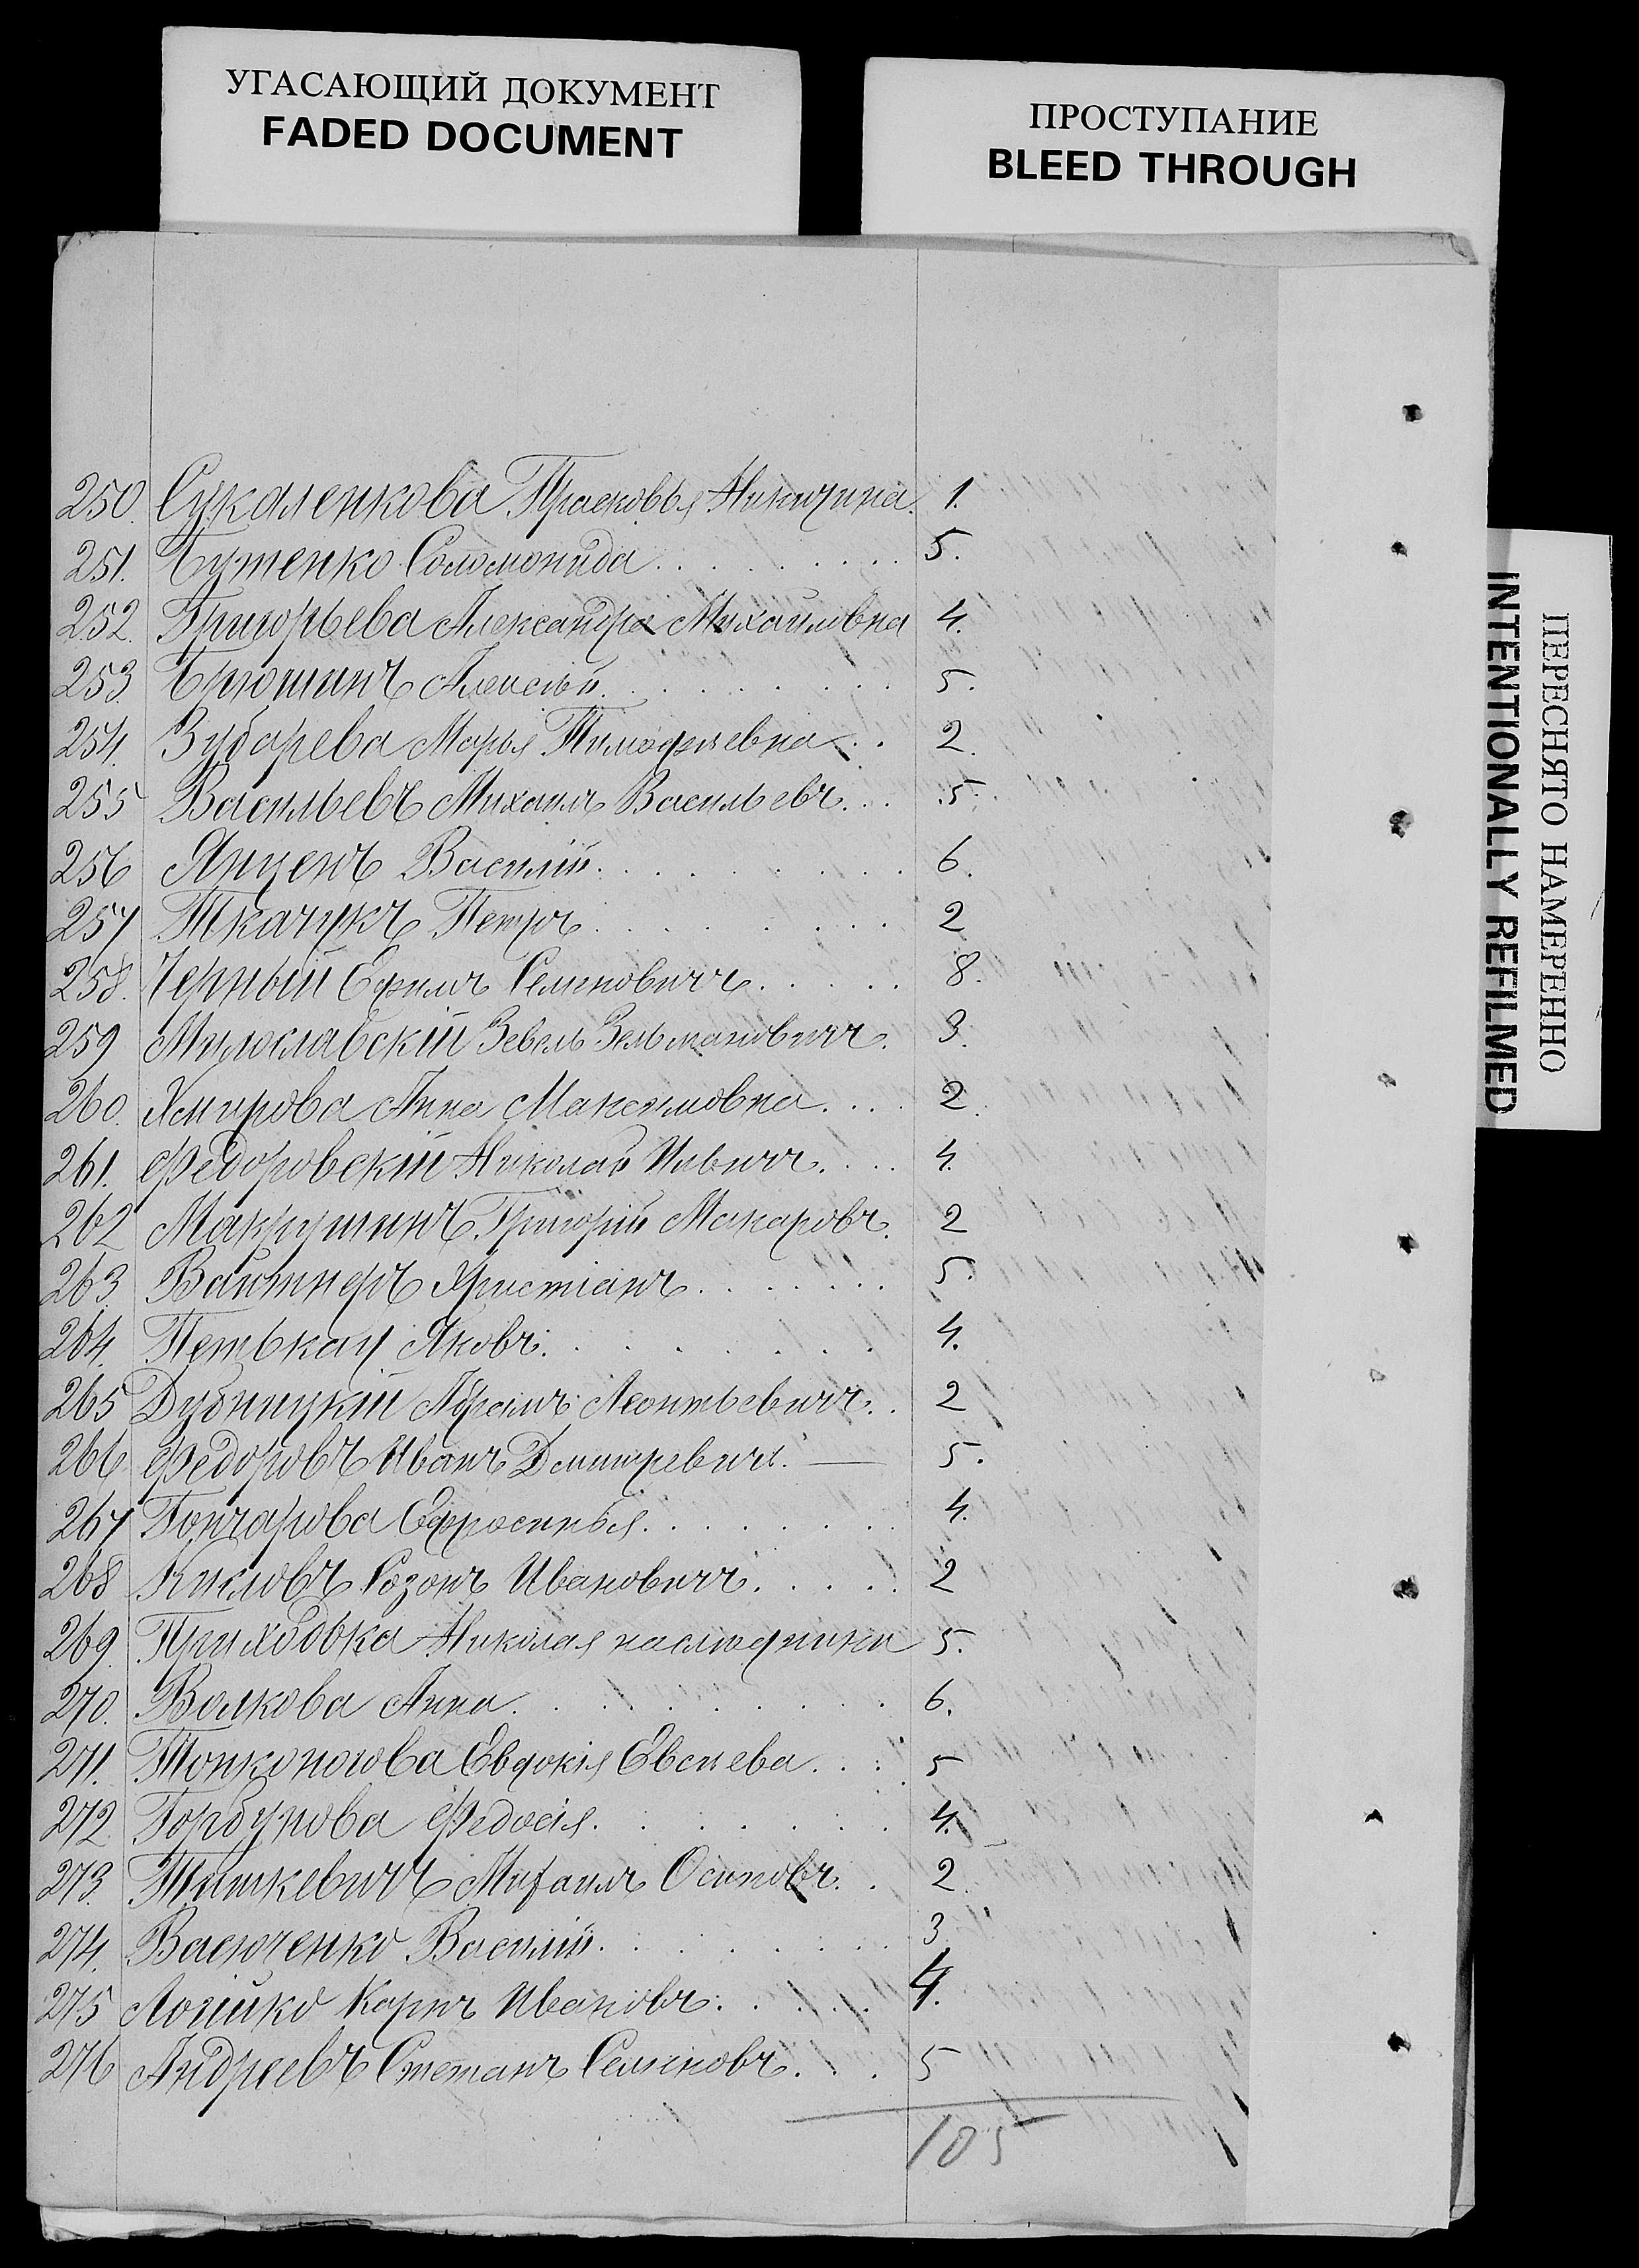 УГАСАЮЩИЙ ДОКУМЕНТ
FADED DOCUMENT
ПРОСТУПАНИЕ
BLEED THROUGH
ПЕРЕСНЯТО НАМЕРЕННО
INTENTIONALLY REFILMED
250. Сукаленкова Прасковья 1.
251. Бутенко Соломонида 5.
252. Григорьева Александра Михайловна 4.
253. Брюшинъ Алексѣй 5.
254. Зубарева Марья Тимофѣевна 2.
255 Васильевъ Михаилъ Васильевъ 5.
256 Янценъ Василій 6.
257 Ткачукъ Петръ 2
258. Черный Ефимъ Семеновичъ 8.
259 Милославскій Зевель Зельмановичъ 3.
260. Анна Максимовна 2.
261. Федоровскій Николай Ильичъ 4.
262 Маккушинъ Григорій Макаровъ 2
263. Христіанъ 5.
264. Петькау Яковъ 4.
265 Дубницкій Абрамъ Леонтьевичъ 2
266 Федоровъ Иванъ Дмитревичъ. — 5.
267 Гончарова Ефросинья 4.
268 Кисловъ Созонъ Ивановичъ 2
269. Приходька Николая наслѣдники 5.
270. Волкова Анна 6.
271. Тонконогова Евдокія Евсѣева 5
272. Горбунова Федосія 4.
273. Тышкевичъ Михаилъ Осиповъ 2.
274. Васюченко Василій 3.
275 Карпъ Ивановъ 4.
276 Андреевъ Степанъ Семеновъ 5
105